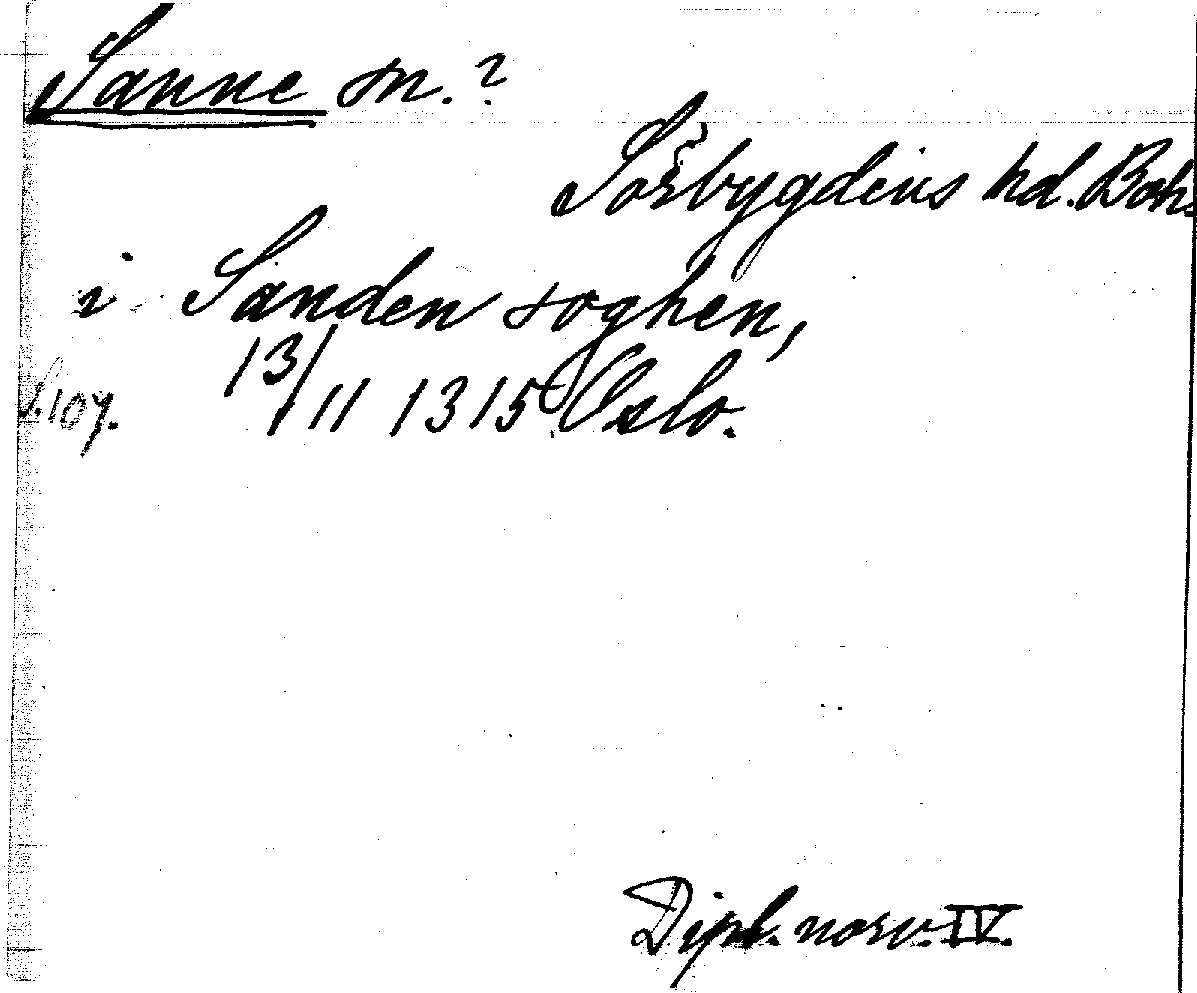 Sanne sn.?
Sörbygdens hd. Boh.
i Sanden soghen,
s. 107. 13/11 1315 Oslo.
Dipl. norv. IV.